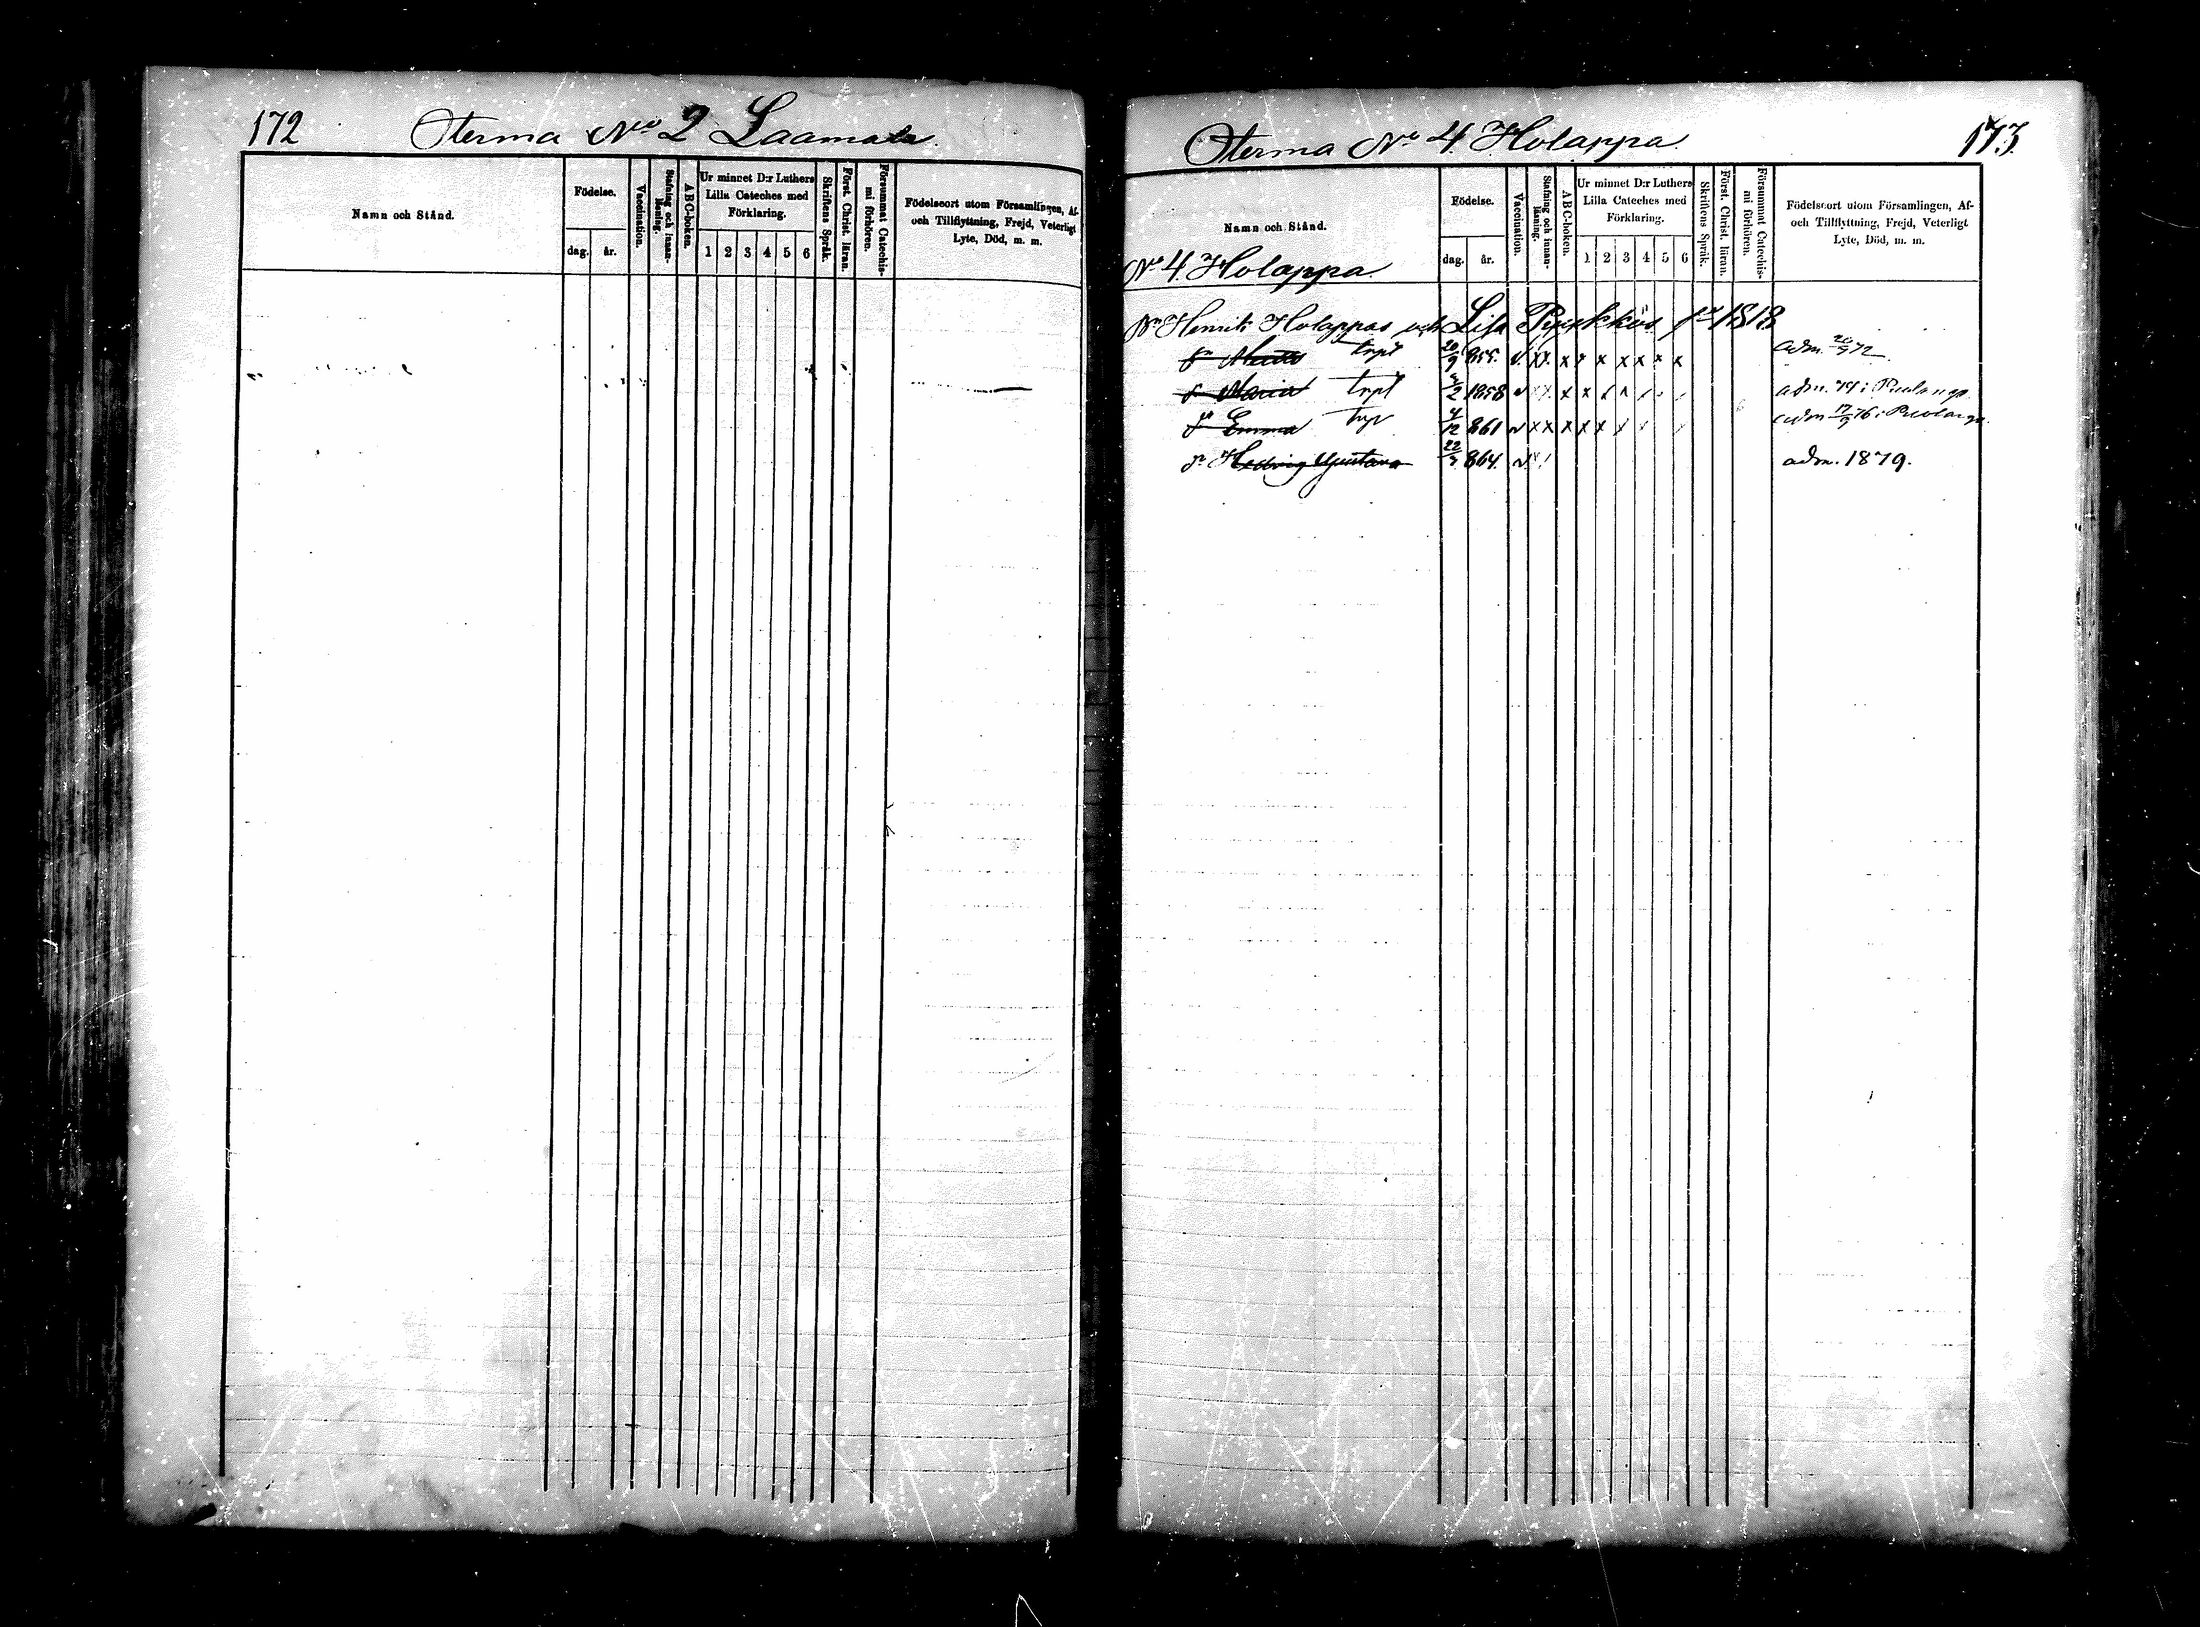 172
Oterma No 2 Laamala.
Namn och Stånd.
Födelse.
dag. år.
Vaccination.
Stafning och innan-läsning.
ABC-boken.
Ur minnet D:r Luthers
Lilla Cateches med
Förklaring.
1 2 3 4 5 6
Skriftens Språk.
Först. Christ. läran.
Försummat Catechis-mi förhören.
Födelseort utom Församlingen, Af-
och Tillflyttning, Frejd, Veterligt
Lyte, Död, m. m.
Oterma No 4 Holappa
173.
Namn och Stånd.
No 4 Holappa
Födelse.
dag. år.
Vaccination.
Stafning och innan-läsning.
ABC-boken.
Ur minnet D:r Luthers
Lilla Cateches med
Förklaring.
1 2 3 4 5 6
Skriftens Språk.
Först. Christ. läran.
Försummat Catechis-mi förhören.
Födelseort utom Församlingen, Af-
och Tillflyttning, Frejd, Veterligt
Lyte, Död, m. m.
Henrik Holappas och Lisa 1818
20/9 855. v x x x x x x x x x adm. 72.
Maria 1858 v x x x x adm. 74 i
Emma 4/12 861 v x x x x x x adm 76 i
Hedvig Gustava 864. v adm. 1879.